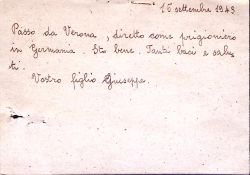 16 settembre 1943
Passo da Verona, diretto come prigioniero
in Germania. Sto bene. Tanti baci e salu
ti.
Vostro figlio Giuseppe.